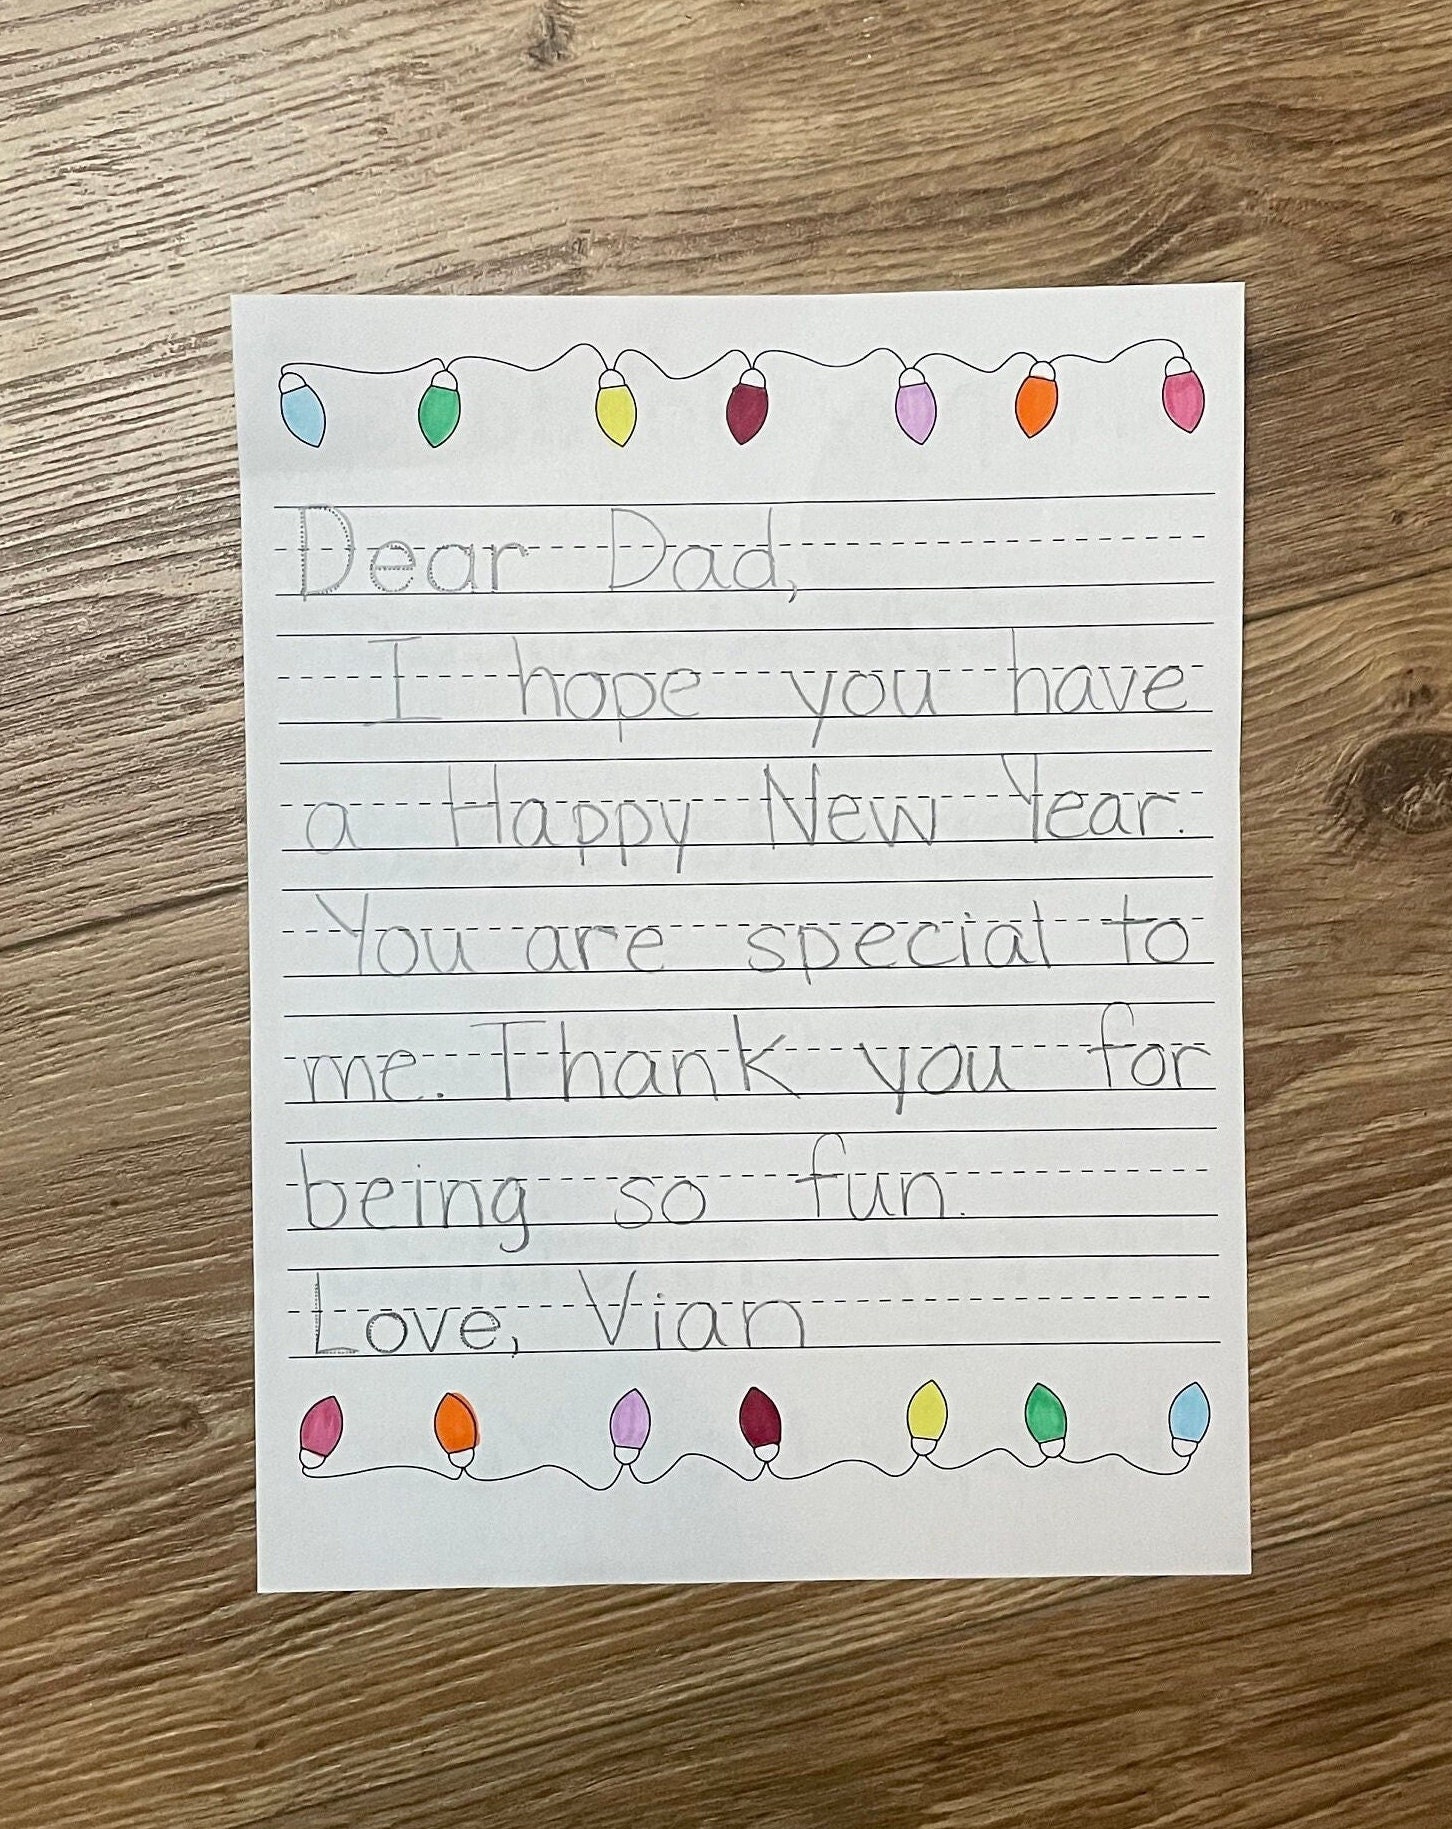 Dear Dad,
I hope you have
a Happy New Year.
You are special to
me. Thank you for
being so fun.
Love, Vian